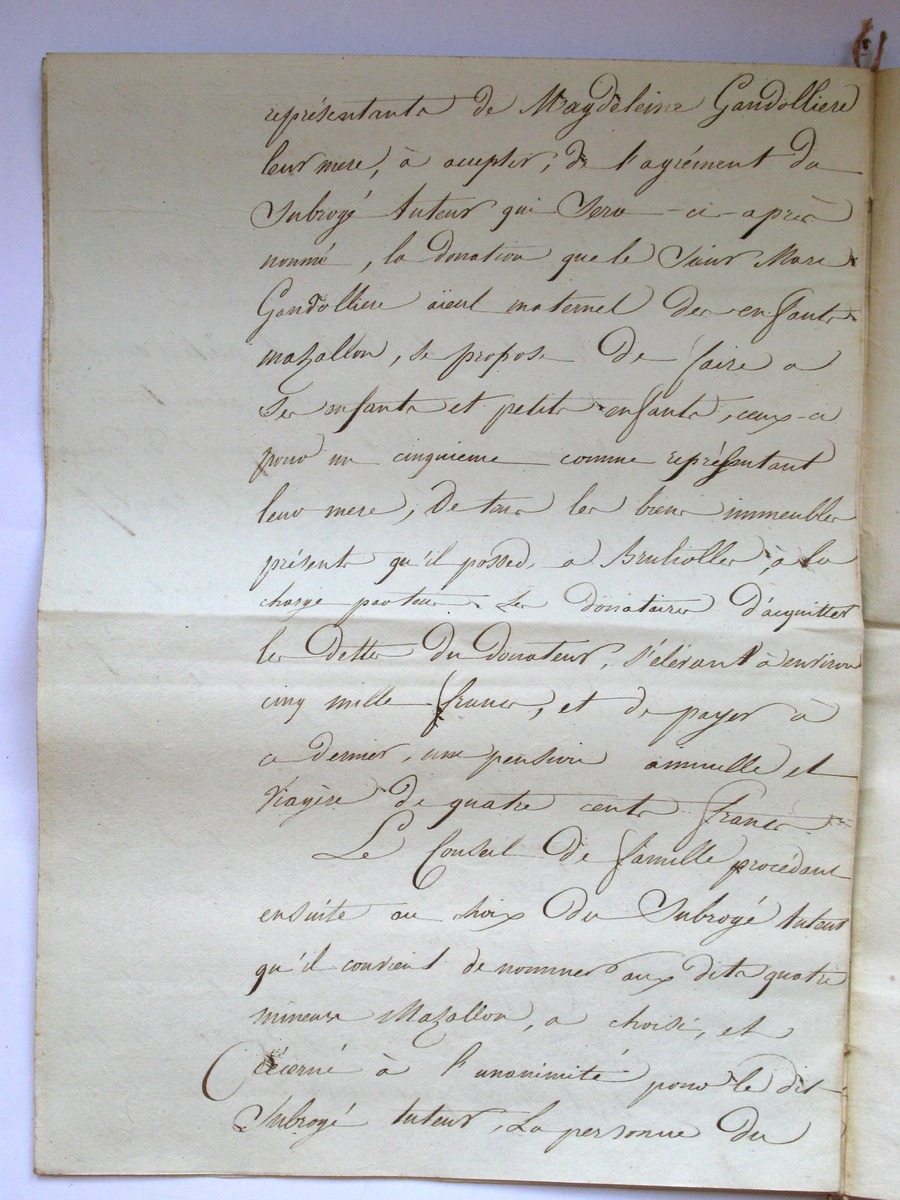 représentants de Magdeleine Gandolliere
leur mere, à accepter, de l'agrément du
Subrogé tuteur qui Sera ci-après
nommé, la donation que le Sieur Marc
Gandolliere aïeul maternel des enfants
mazallon, se propose de faire a
Ses enfants et petits enfants, ceux-ci
pour un cinquieme comme représentant
leur mere, De tous les biens immeubles
présents qu'il possede a Brulioller, à la
charge par tous les donataires d'acquitter
les Dettes du donateur, s'élevant à environ
cinq mille francs, et de payer à
ce dernier, une pension annuelle et
viagère de quatre cents francs.
Le Conseil de famille procédant
ensuite au choix du Subrogé tuteur
qu'il convient de nommer aux dits quatre
mineurs Mazallon, a choisi, et
décerné à l'unanimité pour le dit
Subrogé tuteur, La personne du